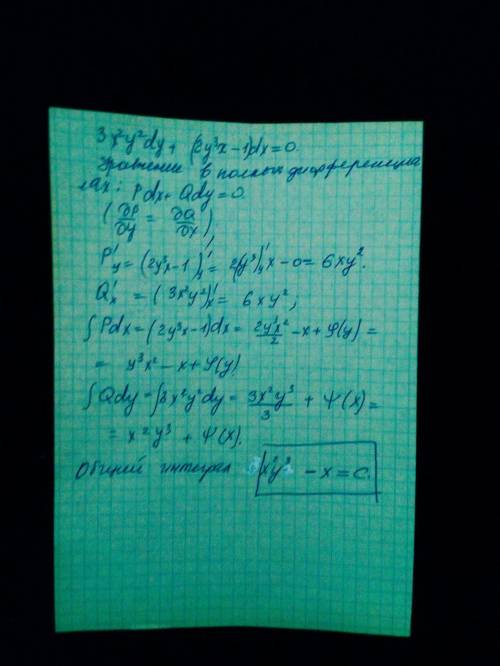 3x²y²dy + (2y³x-1)dx=0.
Уравнение в полных дифференциа
лах: Pdx+Qdy=0.
(∂P/∂y = ∂Q/∂x),
P'y=(2y³x-1)'y=2(y³)'y x-0=6xy².
Q'x=(3x²y²)'x=6xy²;
∫Pdx=(2y³x-1)dx=2y³x²/2-x+φ(y)=
= y³x²-x+φ(y)
∫Qdy=∫3x²y²dy=3x²y³/3+ψ(x)=
= x²y³+ψ(x).
Общий интеграл x²y³-x=C.